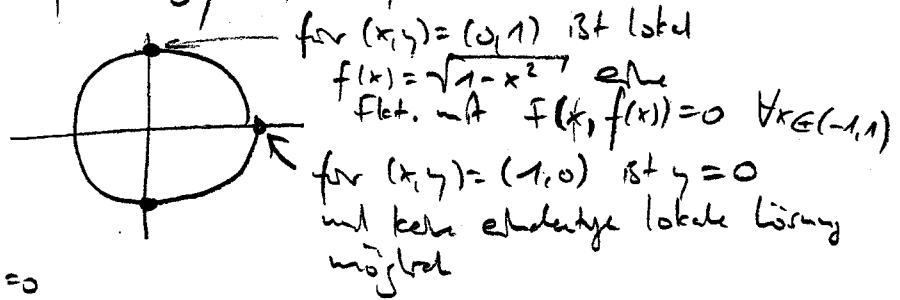 für (x,y)=(0,1) ist lokal
f(x)=√(1-x²) eine
Fkt. mit F(x, f(x))=0 ∀x∈(-1,1)
für (x,y)=(1,0) ist y=0
und keine eindeutige lokale Lösung
möglich
=0